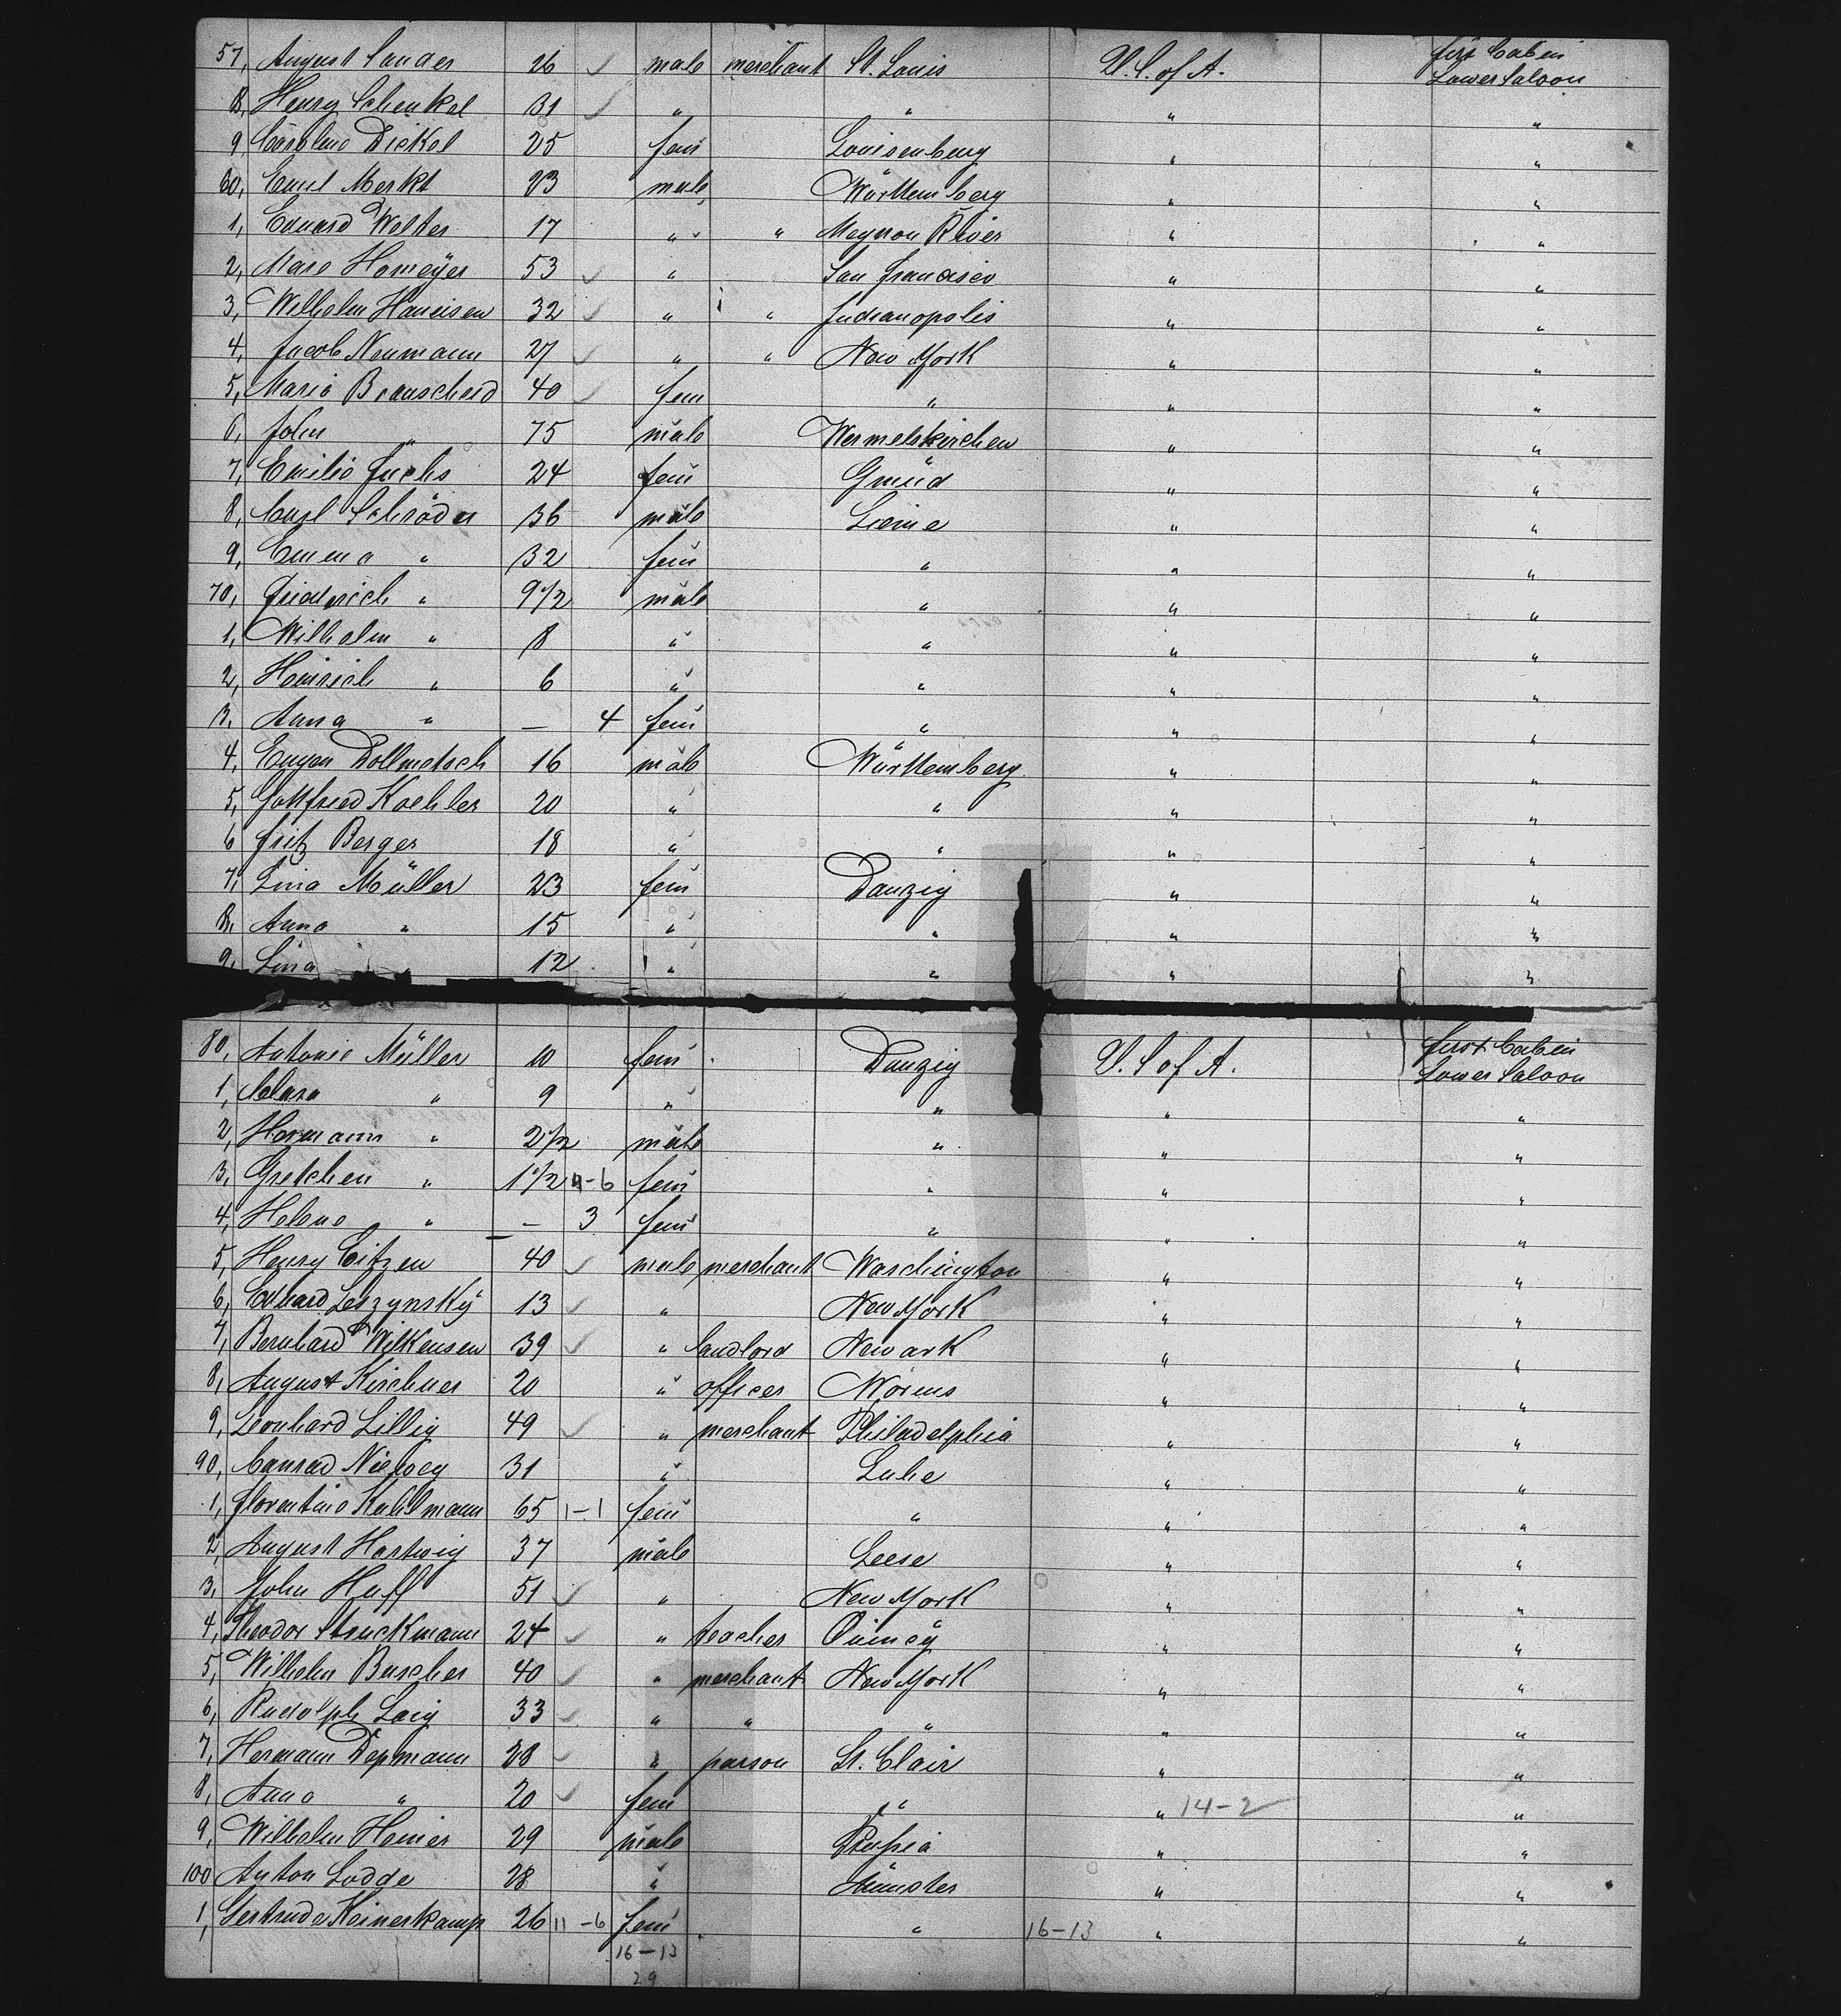 57, August Sander 26 male merchant St. Louis U.S. of A. first Cabin Lower Saloon
8, Henry Schenkel 31 " " " "
9, Caroline Dickel 25 fem Louisenberg " "
60, Emil Merkt 23 male Württemberg " "
1, Eduard Welter 17 " " River " "
2, Homeyer 53 " San Francisco " "
3, Wilhelm Haneisen 32 " " Indianopolis " "
4, Jacob Neumann 27 " " New York " "
5, Maria Branscheid 40 fem " " "
6, John " 75 male Wermelskirchen " "
7, Emilie Fuchs 24 fem Gmünd " "
8, Carl Schröder 36 male " "
9, Emma " 32 fem " " "
70, Friedrich " 9 1/2 male " " "
1, Wilhelm " 8 " " " "
2, Heinrich " 6 " " " "
3, Anna " — 4 fem " " "
4, Eugen Dollmetsch 16 male Württemberg " "
5, Gottfried Koehler 20 " " " "
6 Fritz Berger 18 " " " "
7, Lina Müller 23 fem Danzig " "
8, Anna " 15 " " " "
9, Lina " 12 " " " "
80, Antonie Müller 10 fem Danzig U.S. of A. first Cabin Lower Saloon
1, Clara " 9 " " " "
2, Hermann " 2 1/2 male " " "
3, Gretchen " 1 1/2 11-6 fem " " "
4, Helene " — 3 fem " " "
5, Henry Citzen 40 male merchant Waschington " "
6, Edhard Leszynsky 13 " New York " "
7, Bernhard Wilkensen 39 " landlord Newark " "
8, August Kirchner 20 " officer Worms " "
9, Leonhard Lillig 49 " merchant Philadelphia " "
90, Conrad 31 " Luhe " "
1, Florentine Kuhlmann 65 1-1 fem " " "
2, August Hartwig 37 male Leese " "
3, John Huff 51 " New York " "
4, Theodor Struckmann 24 " teacher Quincy " "
5, Wilhelm Buscher 40 " merchant New York " "
6, Rudolph 33 " " " " "
7, Hermann Depmann 28 " parson St. Clair " "
8, Anna " 20 fem " " 14-2 "
9, Wilhelm Heiner 29 male " "
100 Anton Lodde 28 " Münster " "
1, Gertrude Keinerskamp 26 11-6 fem " 16-13 " "
16-13
29